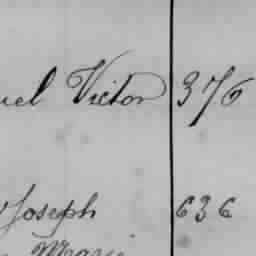 uel Victor 376
Joseph 636
Marie